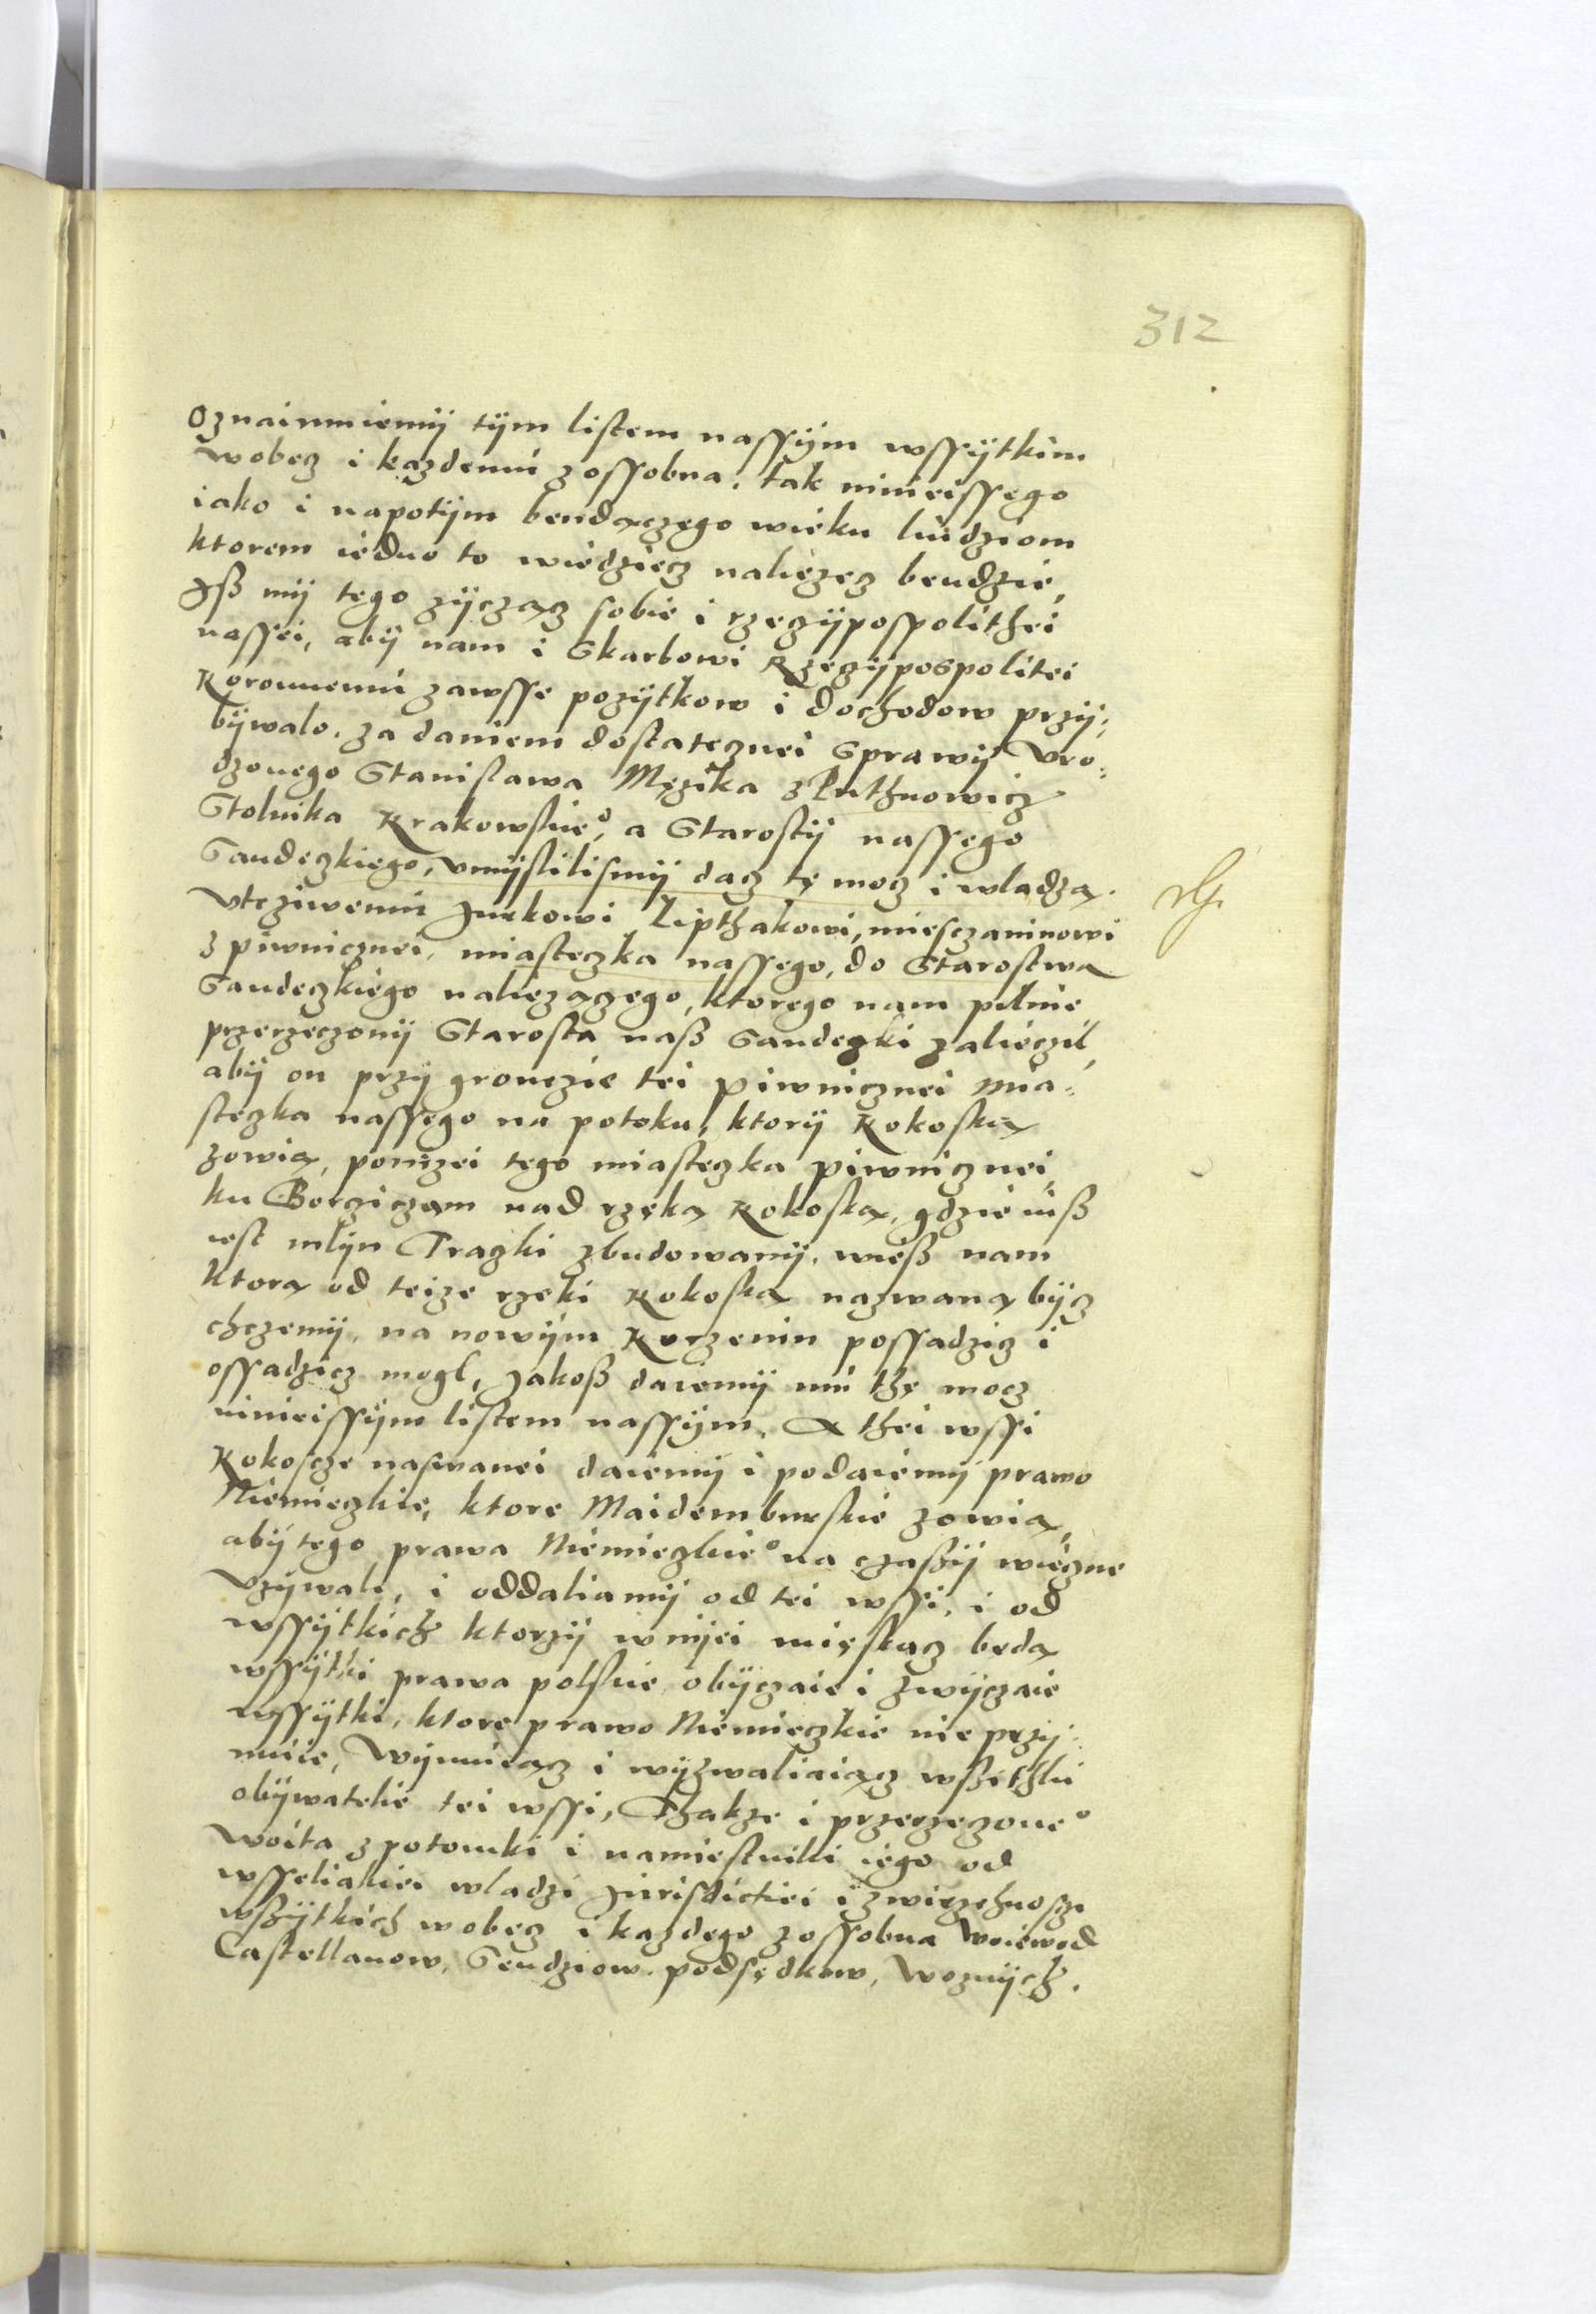 312
Oznaimuiemÿ tÿm listem nassÿm wssÿtkim
wobecz i każdemú zossobna, tak ninieissego
iako i napotÿm bendaczego wieku liudziom
ktorem iedno to wiedziecz nalieżecz bendzie,
Iß mÿ tego zÿcząc sobie i rzeczÿpospolithei
nassei, abÿ nam i Skarbowi Rzeczÿpospolitei
Koronnemú zawsse pożÿtkow i dochodow przÿ:
bÿwalo. za daniem dostatecznei sprawÿ Vro:
dzonego Stanislawa Mężika z Luthnowicz
Stolnika Krakowskieº, a Starostÿ nassego
Sandeczkiego, vmÿslilismÿ dacz tę mocz i wladzą.
Vtcziwemú Jurkowi Lipthakowi, miesczaninowi
z piwnicznei, miasteczka nassego, do Starostwa
Sandeczkiego nalieżączego, ktorego nam pilnie
przerzeczonÿ Starosta naß Sandeczki zalieczil,
abÿ on przÿ gronczie tei Piwnicznei mia:
steczka nassego na potoku, ktorÿ Kokoską
zowią, poniżei tego miasteczka piwnicznei,
ku Borcziczam nad rzeką Kokoską, gdzie iuß
iest mlÿn Traczki zbudowanÿ, wieß nam
ktorą od teize rzeki Kokoską nazwaną bÿcz
chczemÿ, na nowÿm Korzeniu possadzicz i
ossadzicz mogl, Jakoß daiemÿ mú thę mocz
ninieissÿm listem nassÿm. A thei wssi
Kokoscze naswanei daiemÿ i podaiemÿ prawo
Niemieczkie, ktore Maidemburskie zowią,
abÿ tego prawa Niemieczkieº na czaßÿ wieczne
vzÿwali, i oddaliamÿ od tei wssi, i od
wssÿtkich ktorzÿ w nÿei mięskacz będą
wssÿtki prawa polskie obÿczaie i zwÿczaie
wssÿtki, ktore prawo Niemieczkie nie przÿ:
muie, Wÿmúiącz i wÿzwaliaiącz wßithki
obÿwatelie tei wssi, Thakze i przerzeczoneº
woita z potomki i namiestniki iego od
wsseliakiei wladzi Jurisdictiei i zwierzchnosczi
wßÿtkich wobecz i kazdego zossobna Woiewod
Castellanow, Sendziow, podsędkow, Woznÿch,